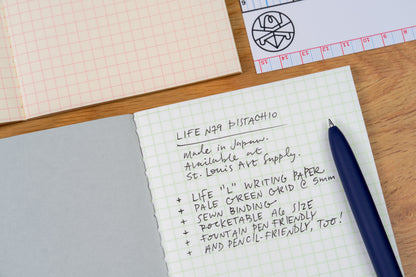 LIFE N79 PISTACHIO
Made in Japan.
Available at
St. Louis Art Supply.
+ LIFE "L" WRITING PAPER
+ PALE GREEN GRID @ 5mm
+ SEWN BINDING
+ POCKETABLE A6 SIZE
+ FOUNTAIN PEN FRIENDLY
+ AND PENCIL-FRIENDLY, TOO!
15 14 13 12 11 10 9